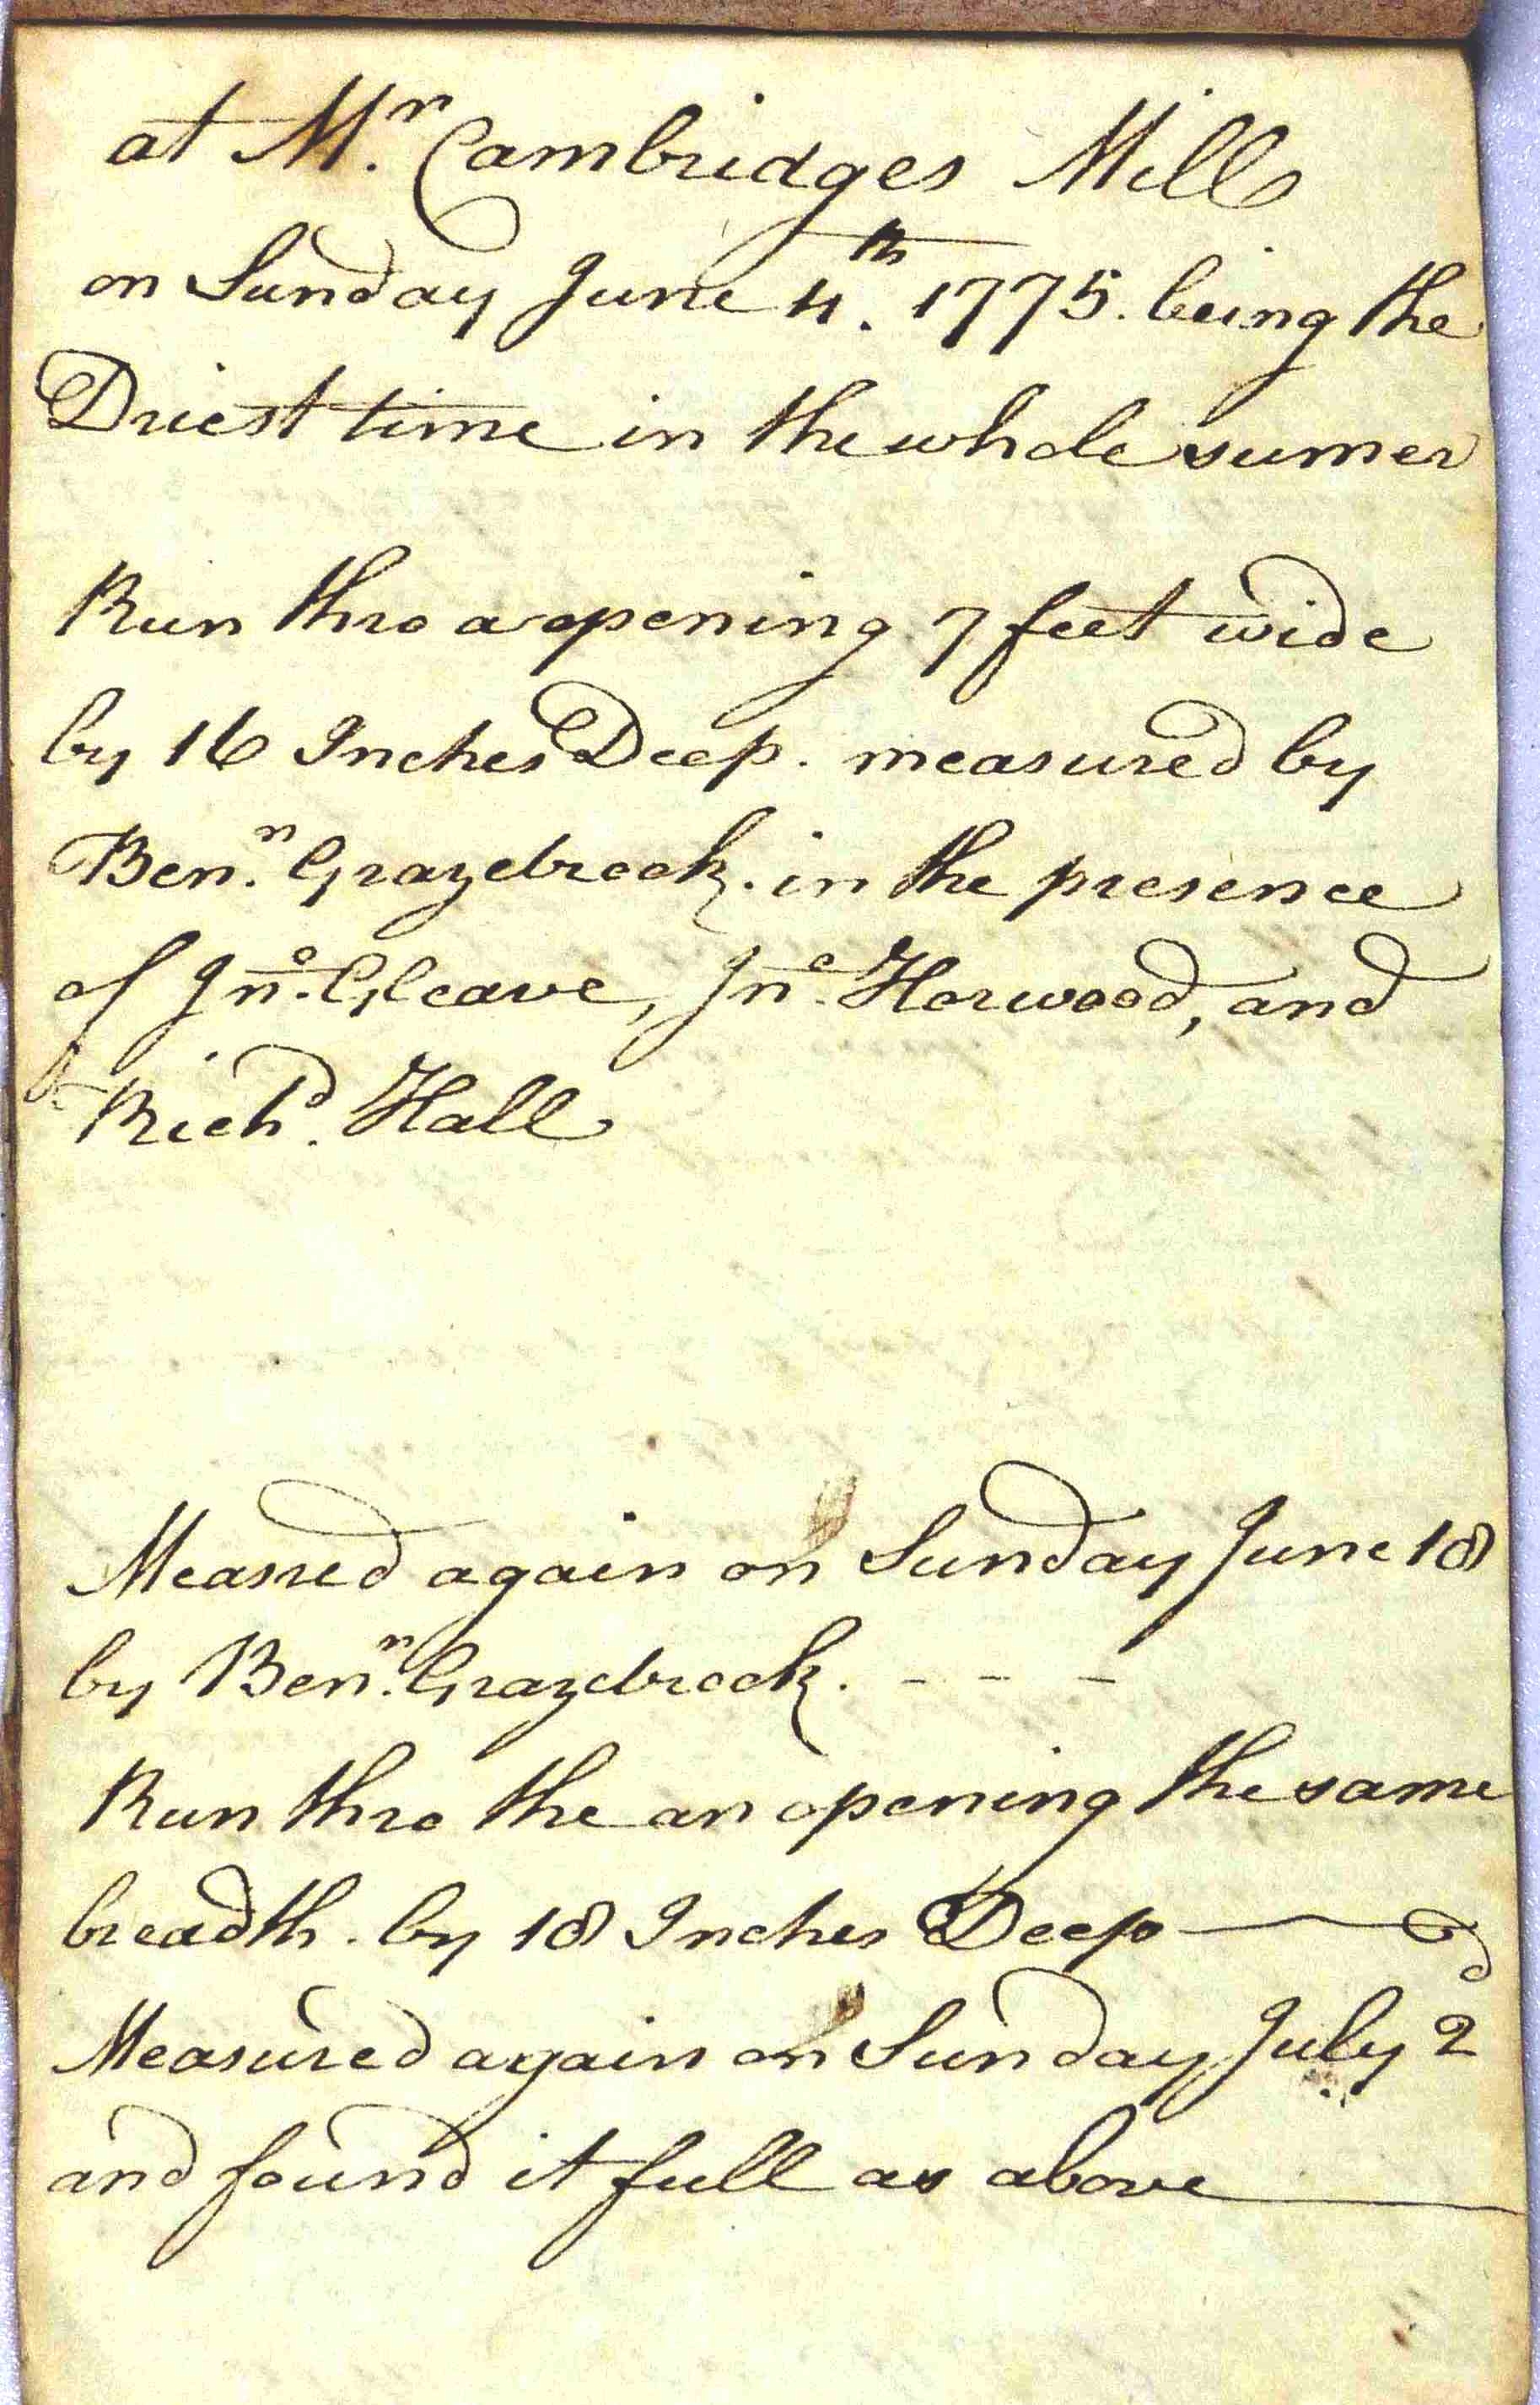 at Mr. Cambridges Mill
on Sunday June 4th. 1775. being the
Driest time in the whole sumer
Run thro a opening 7 feet wide
by 16 Inches Deep. measured by
Benn. Grazebrook. in the presence
of Jno. Gleave, Jno. Horwood, and
Richd. Hall
Measred again on Sunday June 18
by Benn. Grazebrook. - - -
Run thro the an opening the same
breadth. by 18 Inches Deep
Measured again on Sunday July 2d
and found it full as above